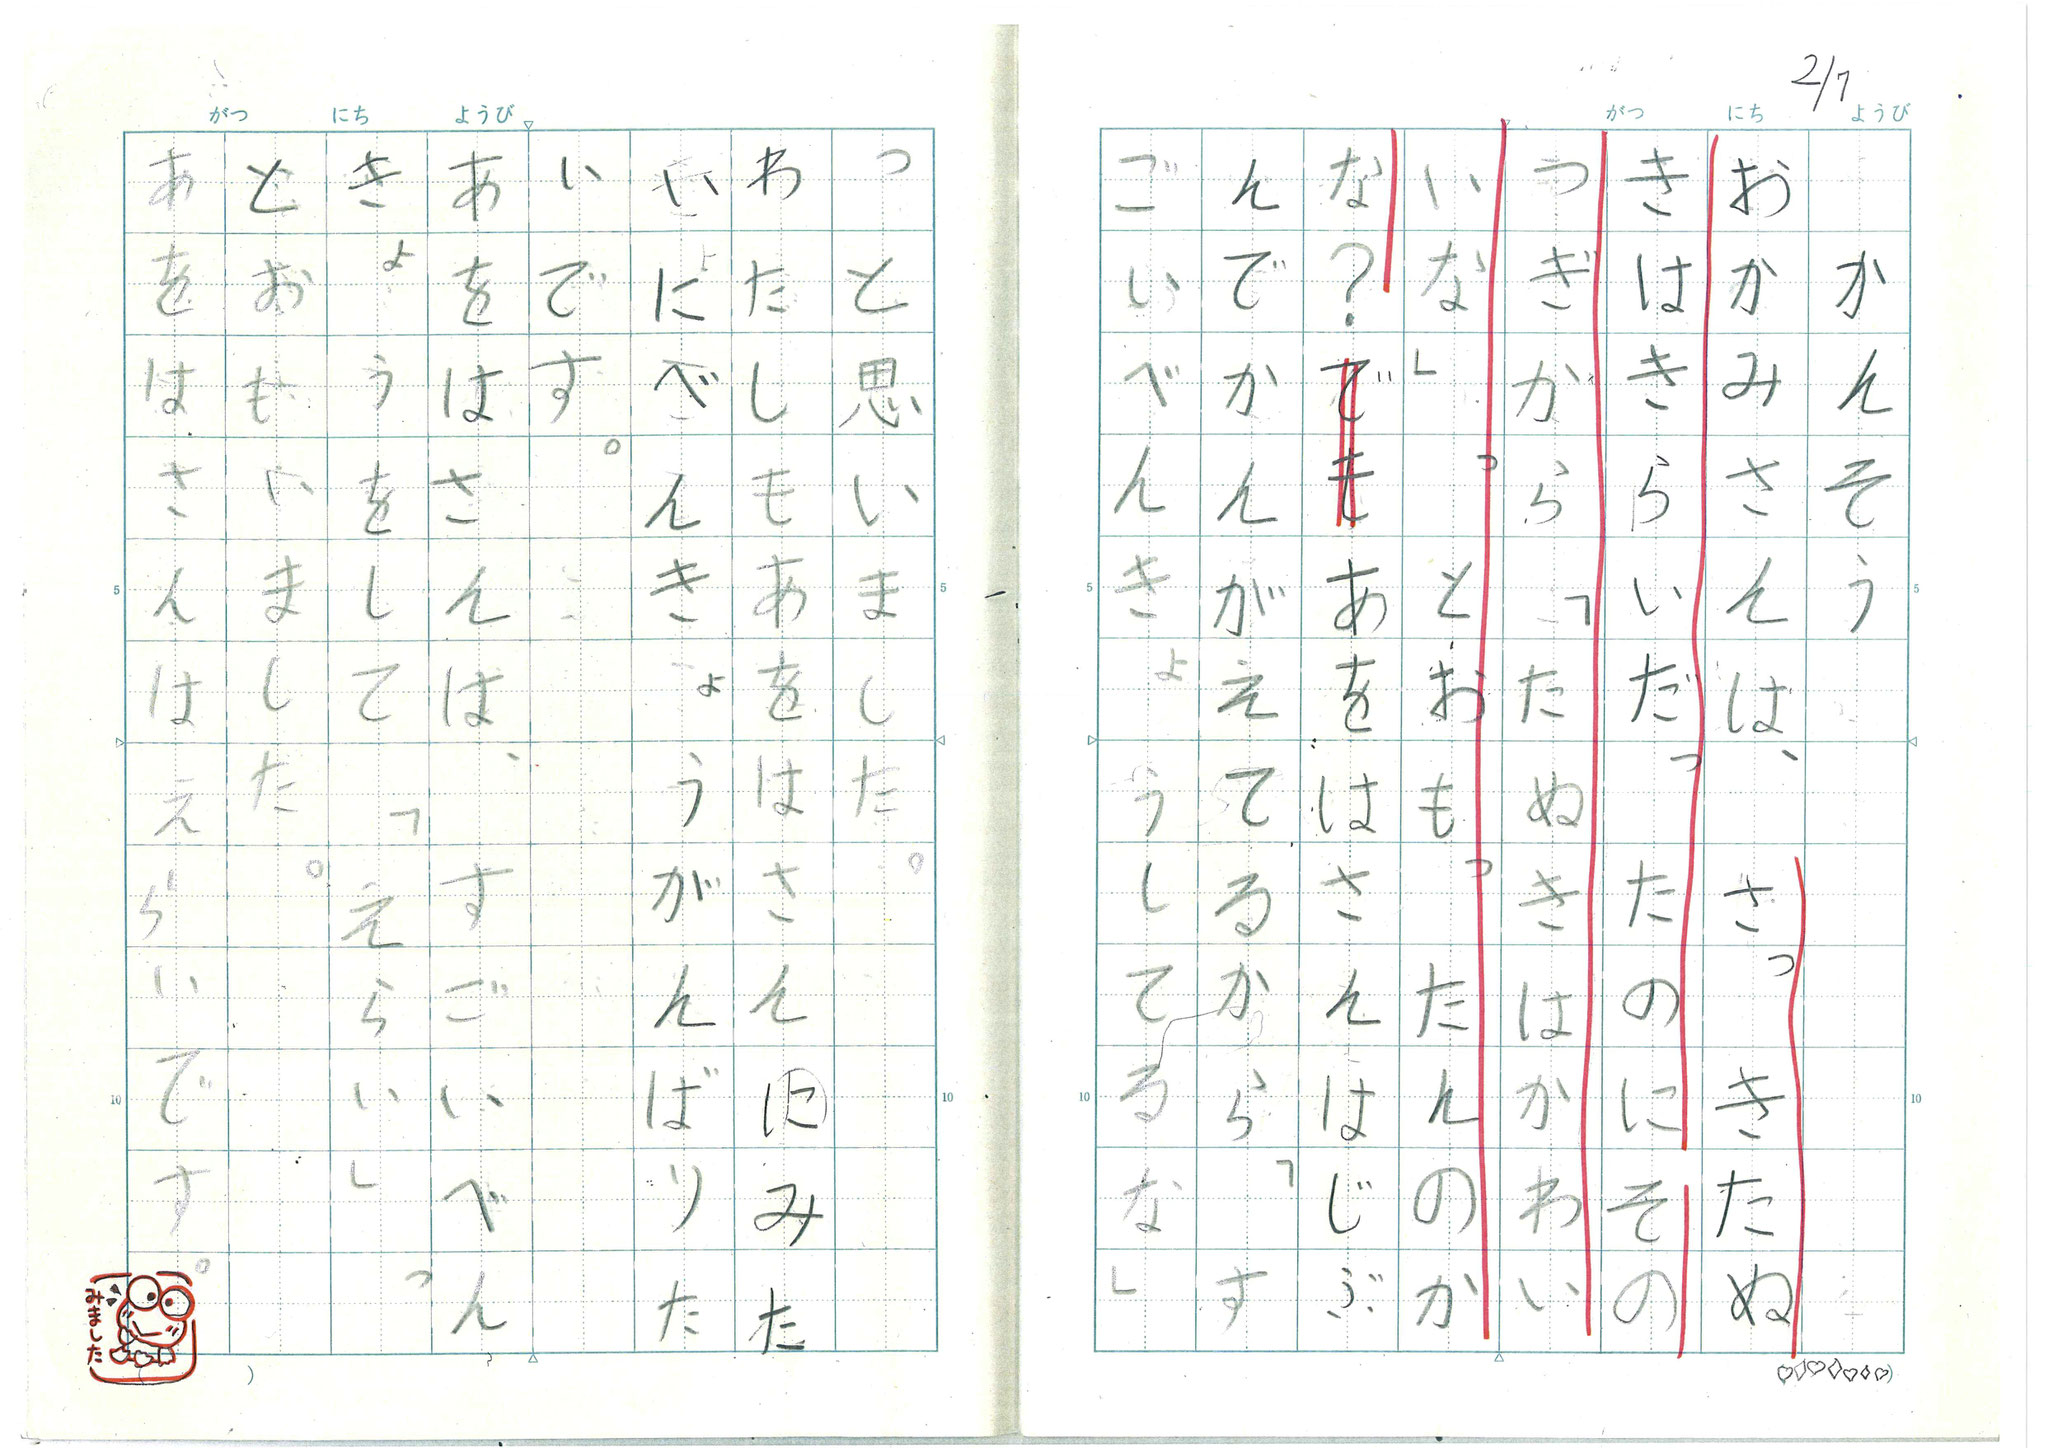 2/7
がつ にち ようび
かんそう
おかみさんは、さっきたぬ
きはきらいだったのにその
つぎから「たぬきはかわい
いな」っとおもったんのか
な?でもあをはさんはじぶ
んでかんがえてるから「す
ごいべんきょうしてるな」
5
10
5
10
がつ にち ようび
っと思いました。
わたしもあをはさんにみた
いにべんきょうがんばりた
いです。
あをはさんは、すごいべん
きょうをして「えらい」っ
とおもいました。
あをはさんはえらいです。
5
10
5
10
みました